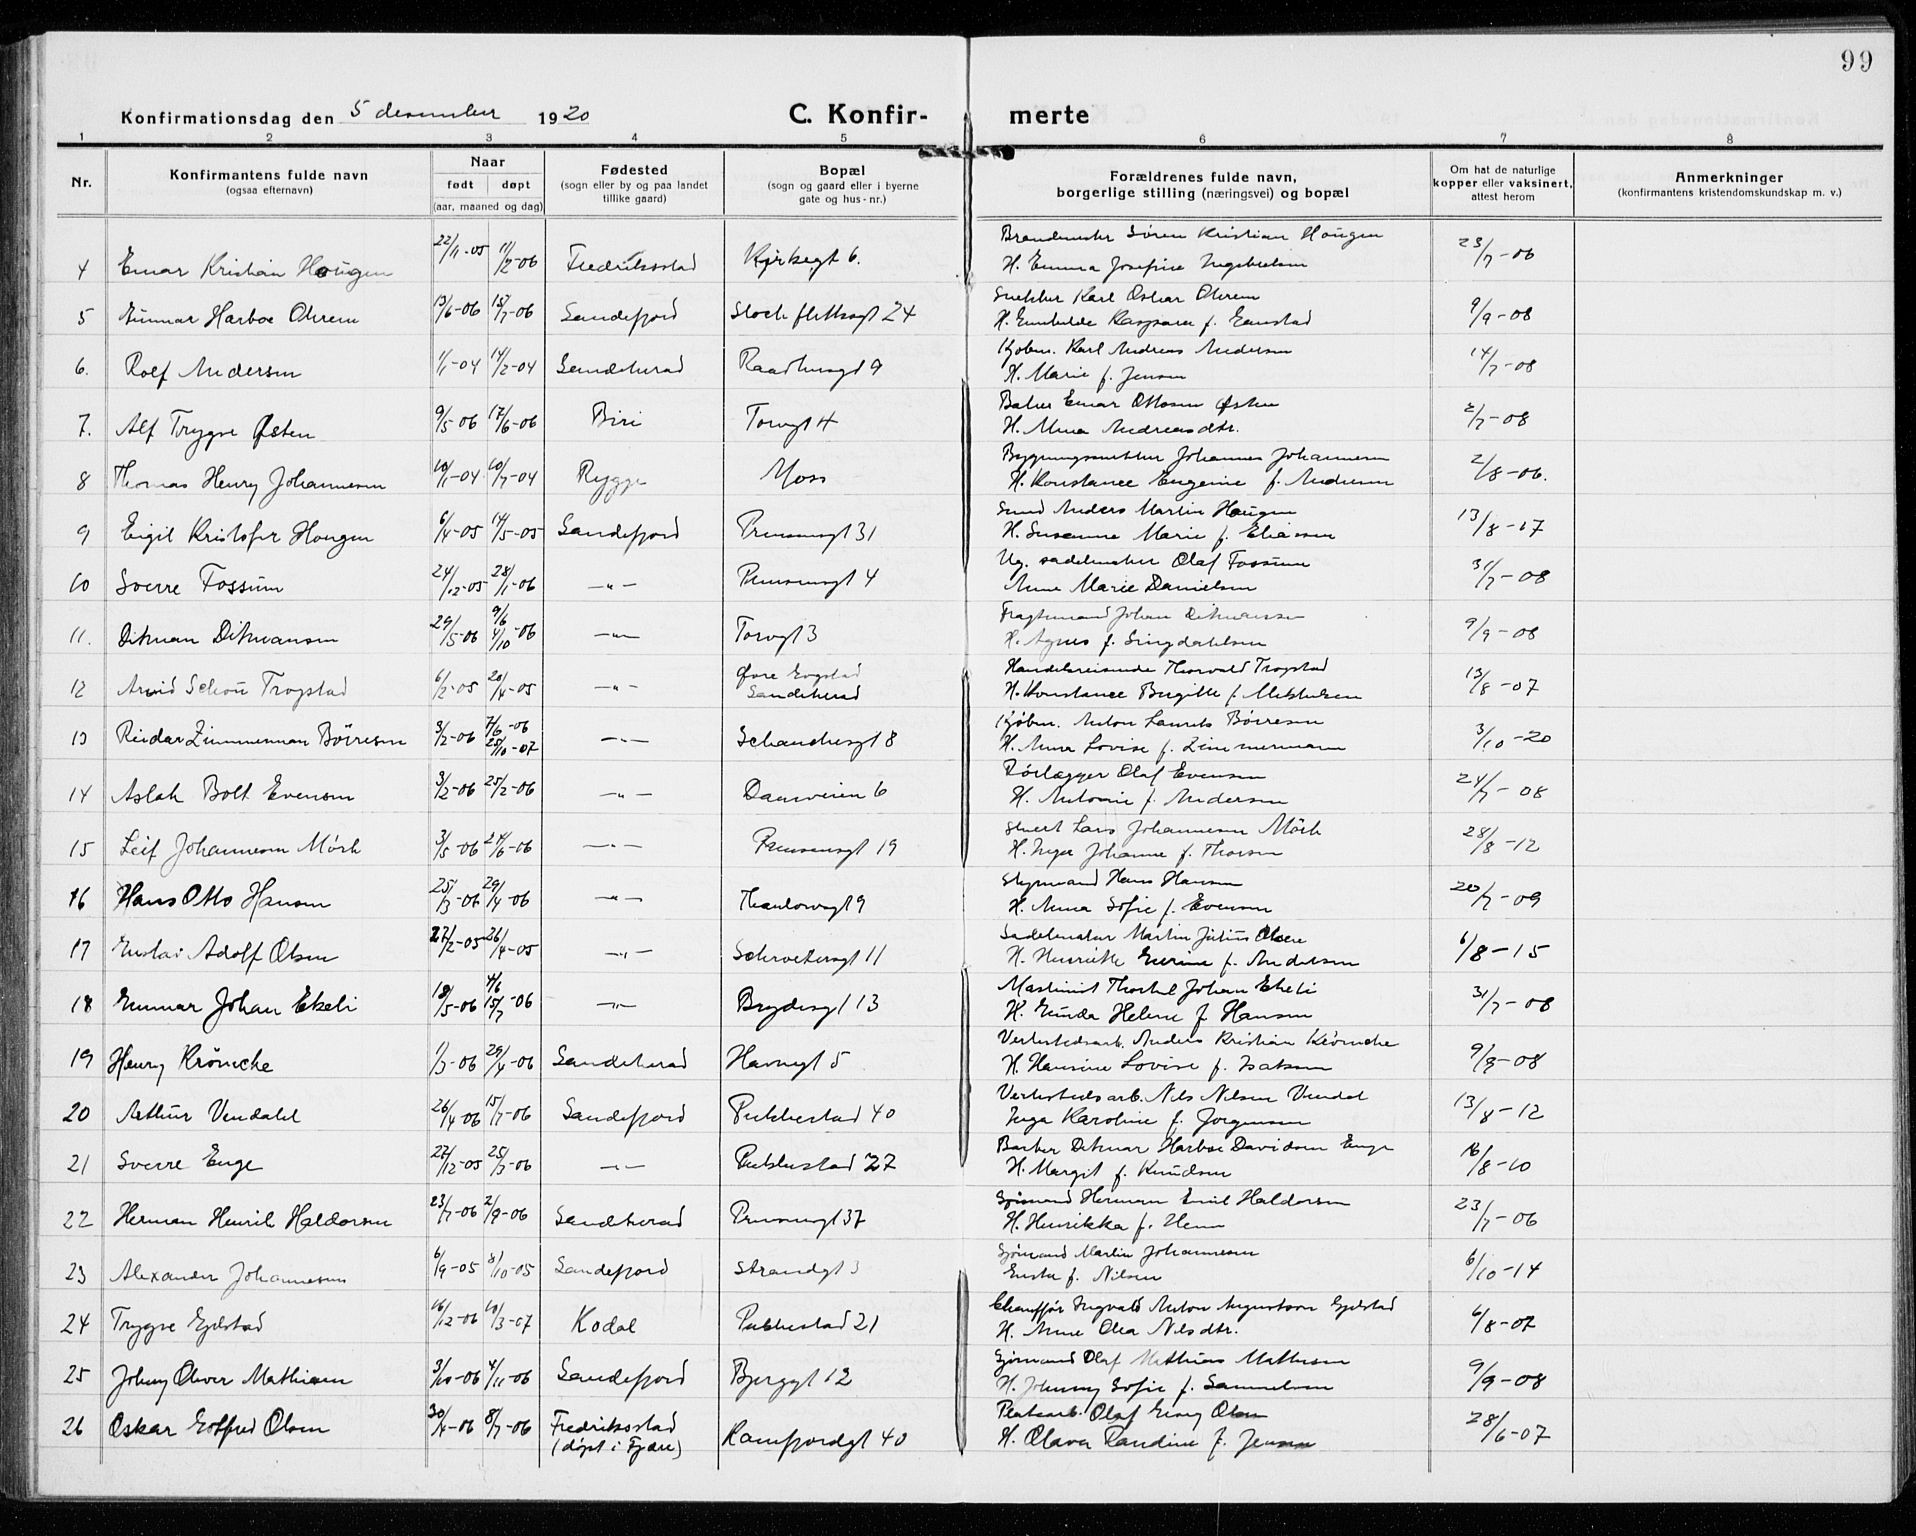 99
Konfirmationsdag den 5 desember 1920 C. Konfir- merte
1 2 3 4 5 6 7 8
Nr. Konfirmantens fulde navn (ogsaa efternavn) Naar født døpt (aar, maaned og dag) Fødested (sogn eller by og paa landet tillike gaard) Bopæl (sogn og gaard eller i byerne gate og hus-nr.) Forældrenes fulde navn, borgerlige stilling (næringsvei) og bopæl Om hat de naturlige kopper eller vaksinert, attest herom Anmerkninger (konfirmantens kristendomskundskap m. v.)
Søren Kristian Hougen
4 Einar Kristian Hougen 22/11-05 11/2-06 Fredriksstad Kirkegt 6. H. Emma Josefine 23/7-06
Snekker Karl Oskar Ohrem
5 Gunnar Harboe Ohrem 13/6-06 15/7-06 Sandefjord 24 H. 9/9-08
Kjøbm. Karl Andreas Andersen
6. Rolf Andersen 1/1-04 14/2-04 Sandeherad Raadhusgt 9 H. Marie f. Jensen 14/7-08
Baker Einar Ottosen Østen
7. Alf Trygve Østen 9/5-06 17/6-06 Biri Torvgt 4 H. Alma Andreasdtr. 2/7-08
Johannes Johannesen
8 Thomas Henry Johannesen 10/1-04 10/7-04 Rygge Moss H. Konstance Eugenie f. Andresen 2/8-06.
Smed Anders Martin Haugen
9 Eigil Kristofer Hougen 6/4-05 14/5-05 Sandefjord Prinsensgt 31 H. Susanne Marie f. Eliassen 13/8-17
Ug. sadelmaker Olaf Fossum
10 Sverre Fossum 24/12-05 28/1-06 -"- Prinsensgt 4 Anne Marie Danielsen 31/7-08
Fragtemand Johan Ditmansen
11. Ditman Ditmansen 29/5-06 9/6 4/10-06 -"- Torvgt 3 H. Agnes f. Lingdahlsen 9/9-08
Handelsreisende Thorvald Trogstad
12 Arvid Schou Trogstad 6/2-05 20/4-05 -"- Øvre Gogstad Sandeherad H. Konstance Birgitte f. Mikkelsen 13/8-07
Kjøbm. Anton Laurits Börresen
13 Reidar Zimmerman Börresen 3/2-06 7/6-06 28/10-07 -"- 8 H. Anna Lovise f. Zimmermann 3/10-20
Rörlægger Olaf Evensen
14 Aslak Bolt Evensen 3/2-06 25/2-06 -"- Daasveien 6 H. Antonie f. Andersen 24/7-08
Stuert Lars Johannesen Mörk
15 Leif Johannesen Mörk 3/5-06 24/6-06 -"- Prinsensgt 19 H. Inga Johanne f. Thorsen 28/8-12
Styrmand Hans Hansen
16 Hans Otto Hansen 25/3-06 29/4-06 -"- Thaulowsgt 9 H. Anna Sofie f. Evensen 20/7-09
Sadelmaker Martin Julius Olsen
17 Gustav Adolf Olsen 27/2-05 26/4-05 -"- Schrøtersgt 11 H. Henriette f. Andersen 6/8-15
Maskinist Thorkel Johan Ekeli
18 Gunnar Johan Ekeli 18/5-06 4/6 15/7-06 -"- Brydesgt 13 H. Gunda Helene f. Hansen 31/7-08
Verkstedsarb. Anders Kristian Kröncke
19 Henry Kröncke 1/3-06 29/4-06 Sandeherad Havnegt 5 H. Hansine Lovise f. Isaksen 9/9-08
Verkstedsarb. Nils Nilsen Vendal
20 Arthur Vendahl 26/4-06 15/7-06 Sandefjord Pukkestad 40 Inga Karoline f. Jorgensen 13/8-12
Barber Ditmar Harboe Davidsen Enge
21 Sverre Enge 27/12-05 25/3-06 -"- Pukkestad 27 H. Margit f. Knudsen 16/8-10
Sjømand Herman Emil Haldorsen
22 Herman Henrik Haldorsen 23/7-06 2/9-06 Sandeherad Prinsensgt 37 H. Henrikka f. Henn 23/7-06
Sjømand Martin Johannesen
23 Alexander Johannesen 6/9-05 8/10-05 Sandefjord Strandgt 3 f. Nilsen 6/10-14
Chauffør Ingvald Anton Augustson Gjelstad
24 Trygve Gjelstad 16/12-06 10/3-07 Kodal Pukkestad 21 H. Anne Olea Nilsdtr. 6/8-07
Sjømand Olaf Mathias Mathisen
25 Johny Oliver Mathisen 3/10-06 4/11-06 Sandefjord Bjerggt 12 H. Johnny Sofie f. Samuelsen 9/9-08
Platearb. Olaf Georg Olsen
26 Oskar Gotfred Olsen 30/4-06 8/7-06 Fredriksstad (døpt i Fjære) Kamfjordgt 40 H. Olava Randine f. Jensen 28/6-07